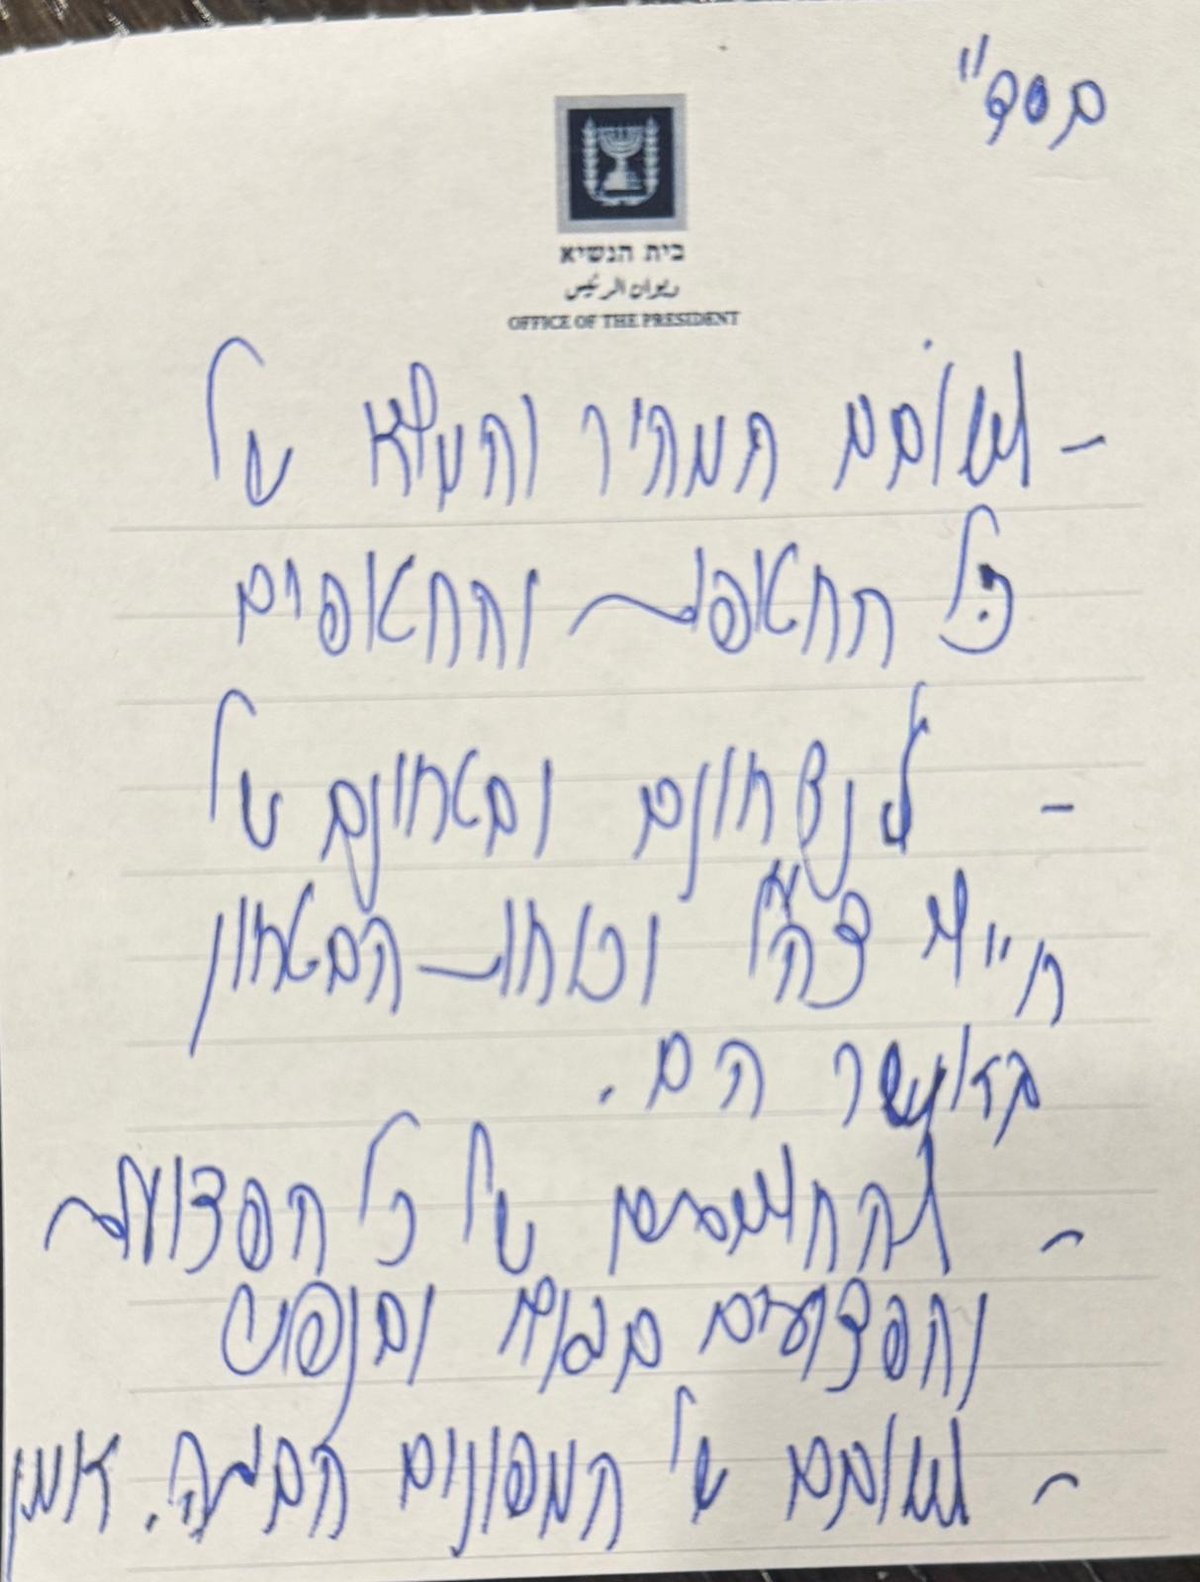 בסד"
בית הנשיא
ديوان الرئيس
OFFICE OF THE PRESIDENT
- לשובם המהיר והמלא של
כל החטופות והחטופים
- לנצחונם ובטחונם של
חיילי צה"ל וכוחות הבטחון
באשר הם.
- להחלמתם של כל הפצועות
והפצועים בגוף ובנפש
- לשובם של המפונים הביתה. אמן